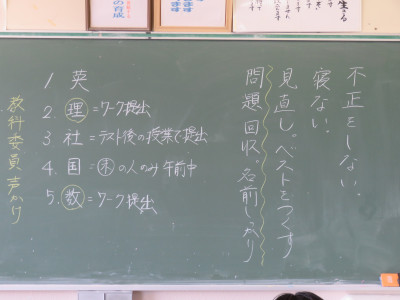 不正をしない。
寝ない。
見直し。ベストをつくす
問題回収。名前しっかり
1 英
2. 理=ワーク提出
3 社=テスト後の授業で提出
4. 国=未の人のみ午前中
5. 数=ワーク提出
教科委員声かけ
の育成
ます
生きる